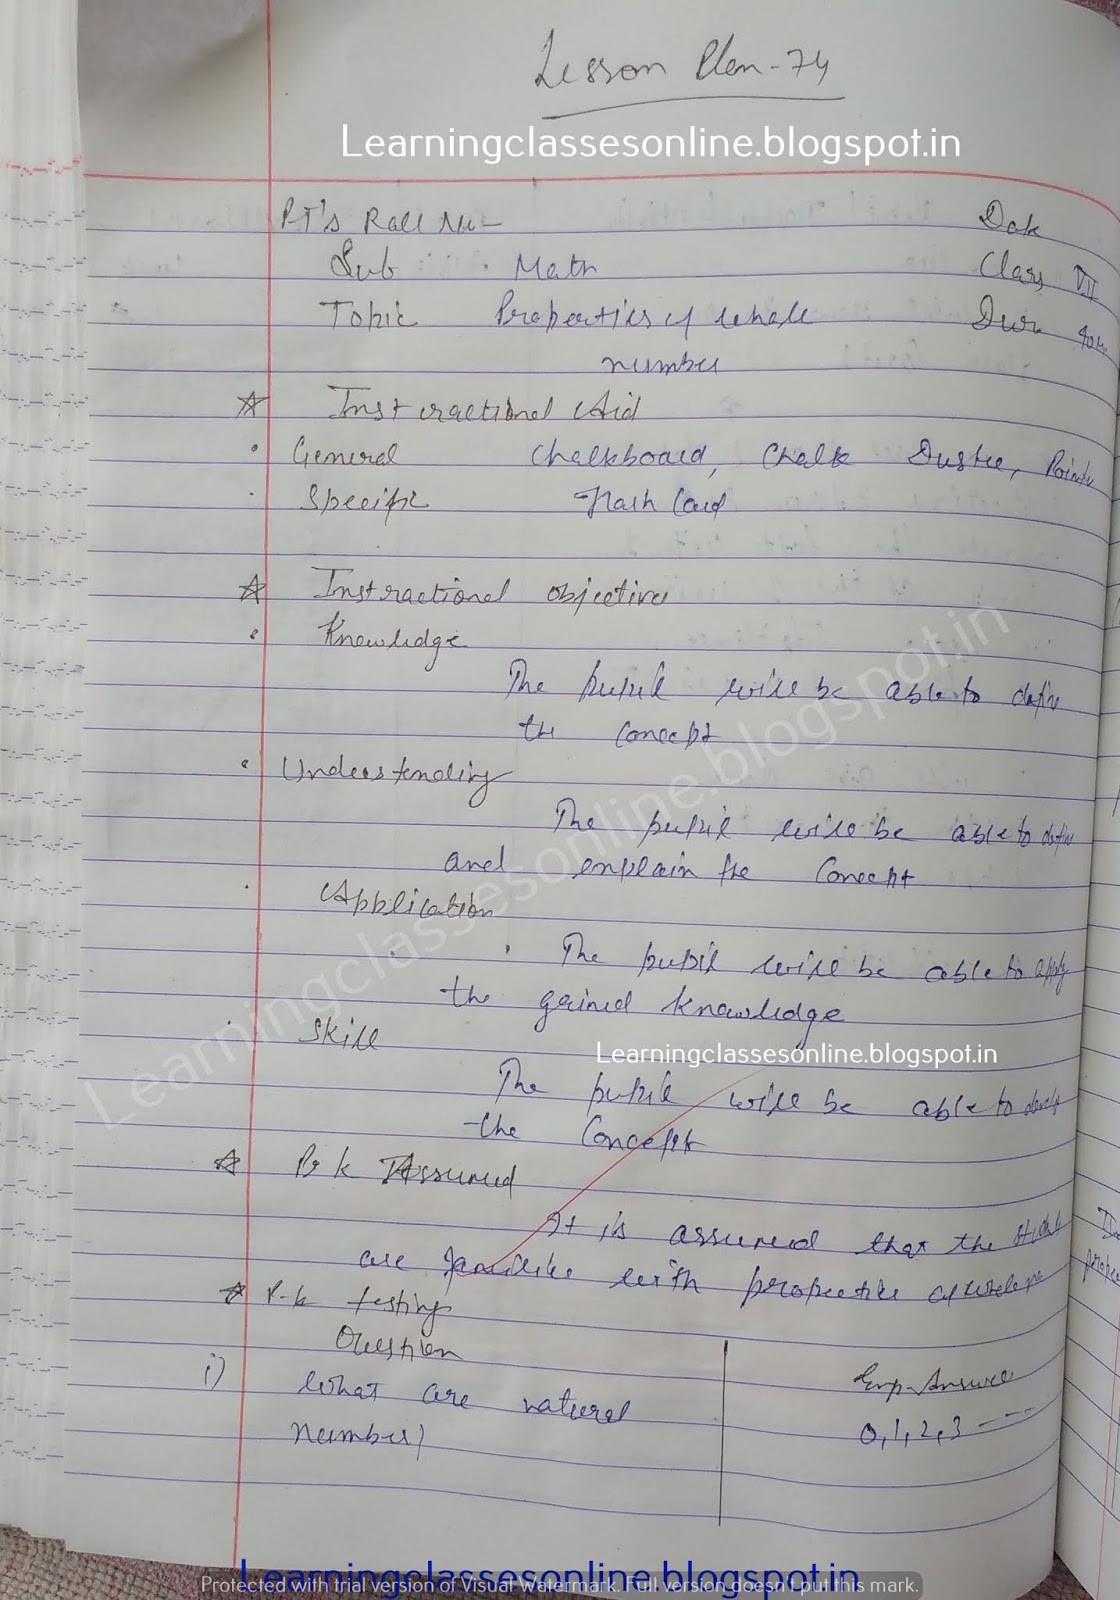 Lesson Plan-74
Learningclassesonline.blogspot.in
P-T's Roll No- Date
Sub Math Class VII
Topic Properties of whole Dur
number
☆ Instractional Aid
• General Chalkboard, Chalk Duster, Pointe
• Specific Flash Card
☆ Instractional objectives
• Knowledge
The pupil will be able to define
the Concept
• Understanding
The pupil will be able to define
and enplain the Concept
• Application
• The pupil will be able to apply
the gained knowledge
Skill
Learningclassesonline.blogspot.in
The pupil will be able to develop
the Concept
☆ P k Assumed
It is assumed that the student
are familiar with properties of whole no
☆ P-k testing
Question Exp-Answer
i) What are natural
0,1,2,3 ----
number)
Learningclassesonline.blogspot.in
Learningclassesonline.blogspot.in
Protected with trial version of Visual Watermark. Full version doesn't put this mark.